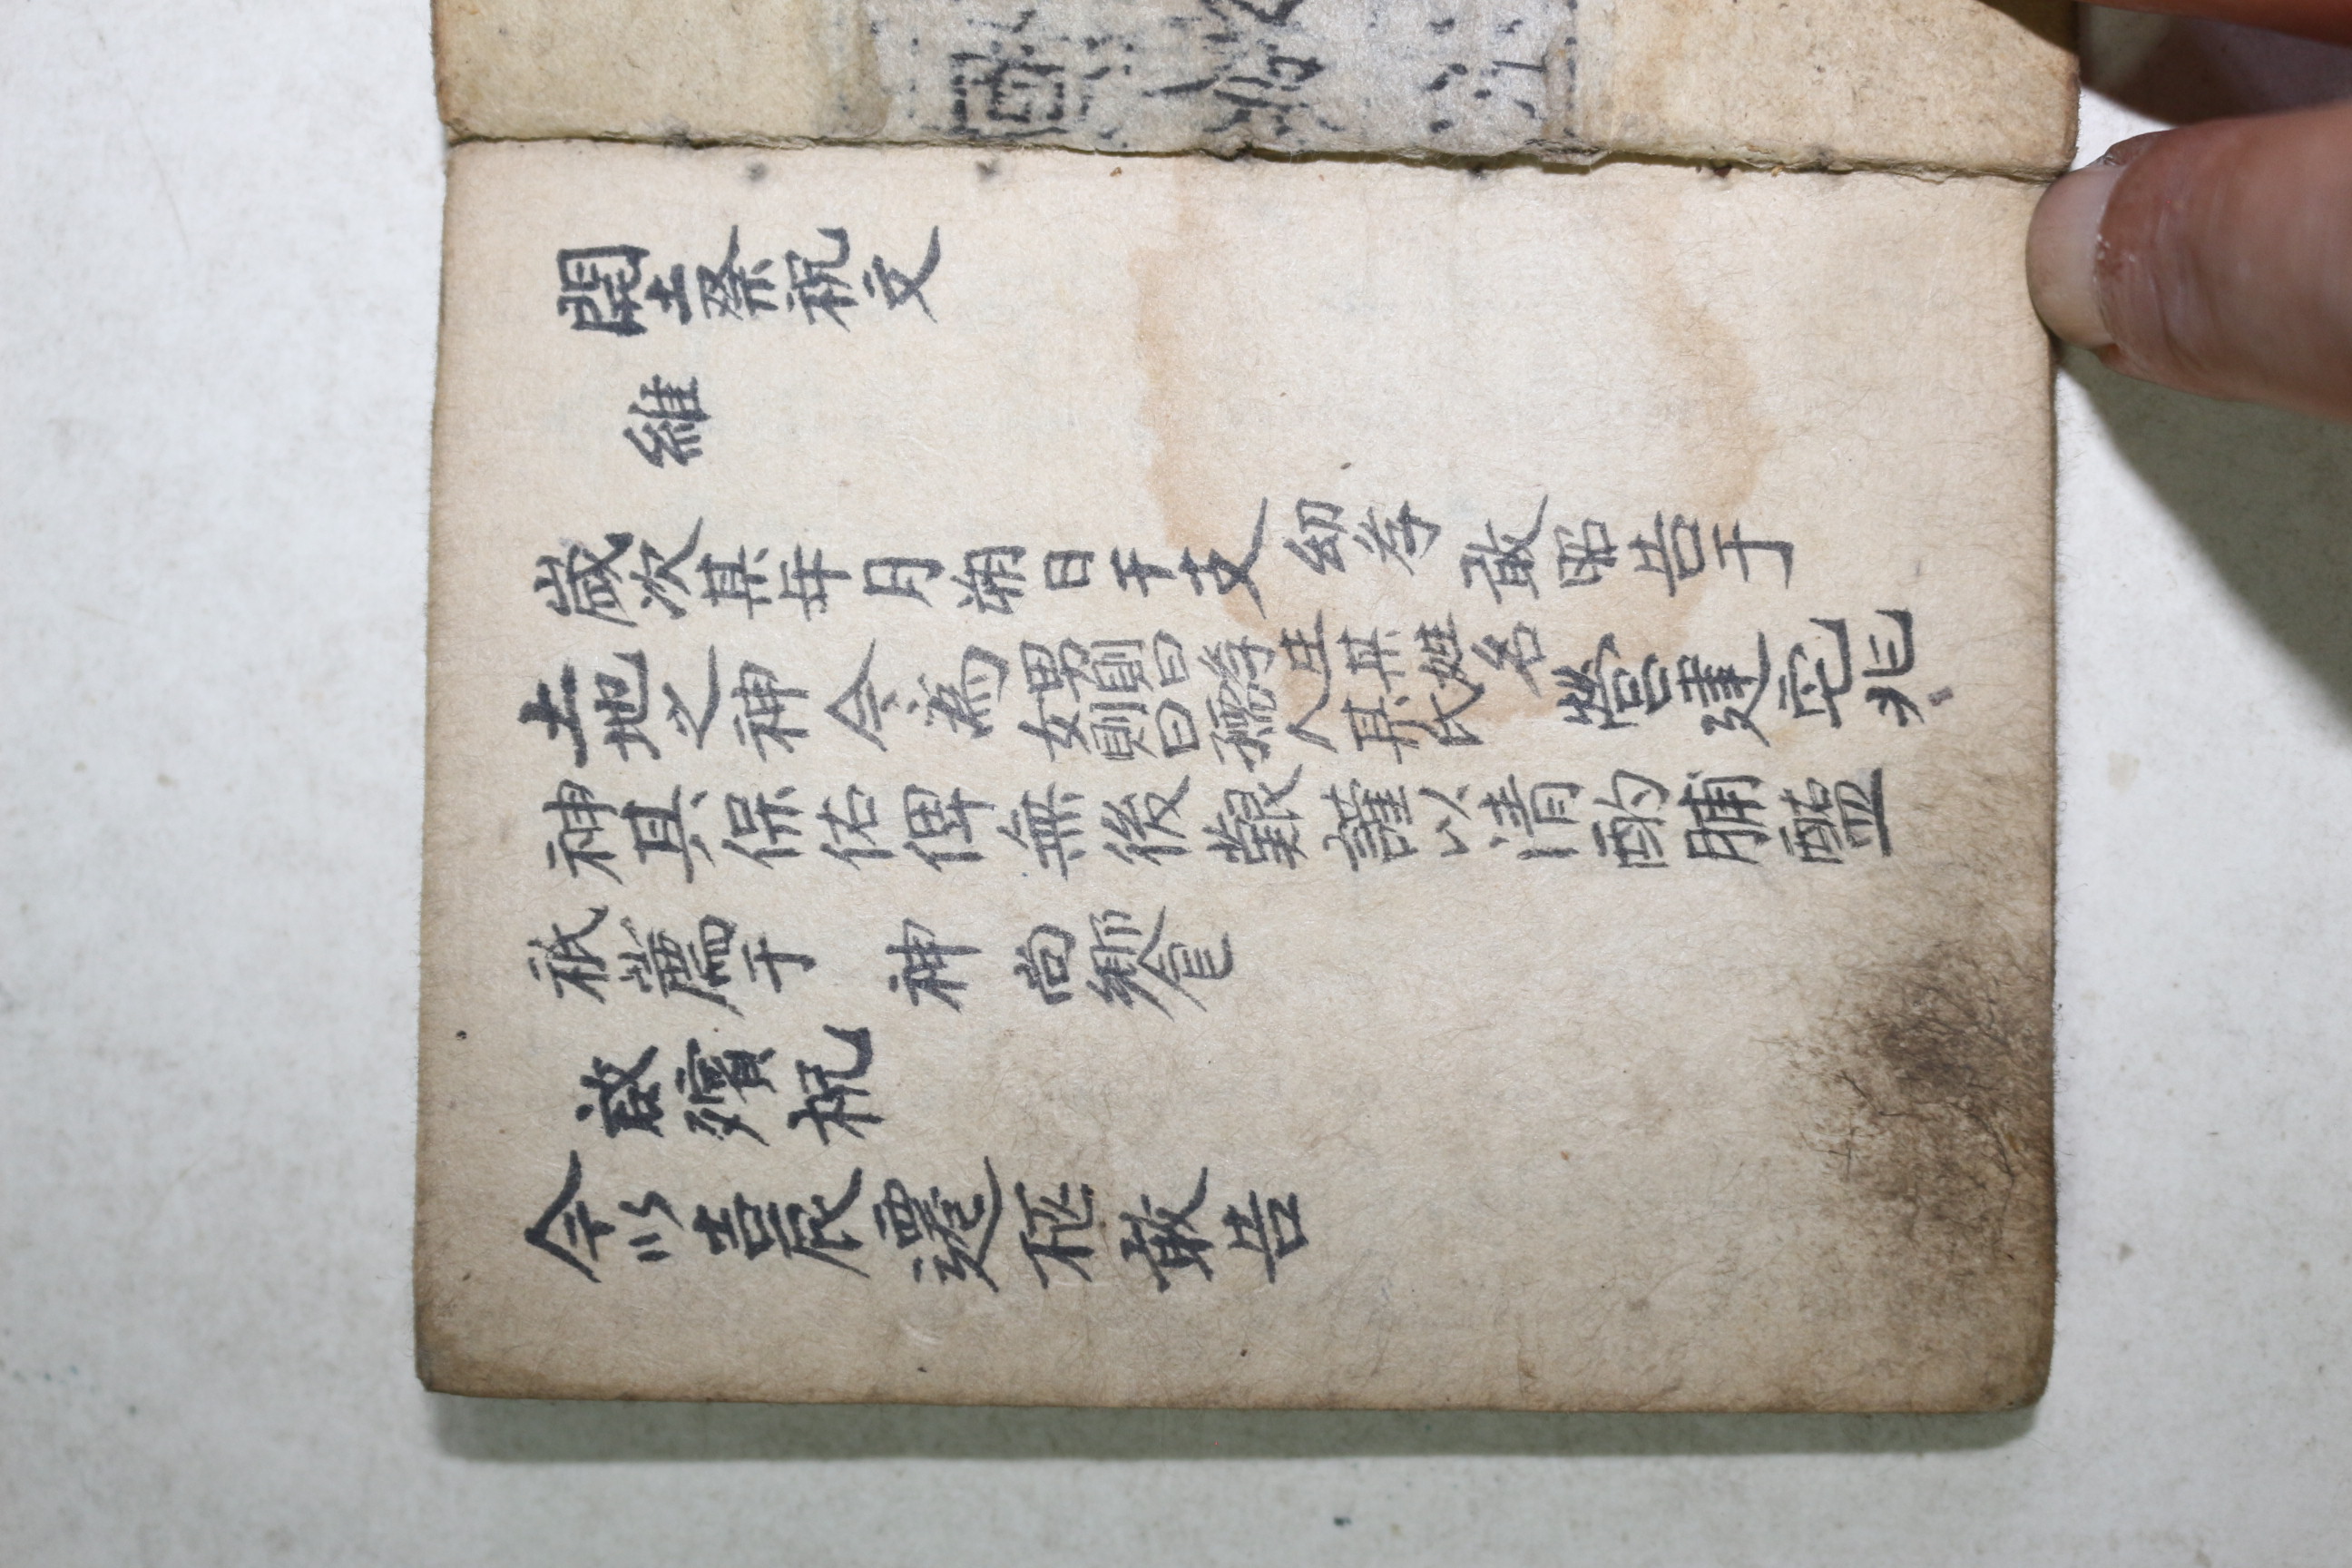 開土祭祝文
維
歲次某年月朔日干支幼學敢昭告于
土地之神今爲男則曰學生某姓名女則曰孺人某氏營建宅兆
神其保佑俾無後艱謹以淸酌脯醢
祇薦于神尙饗
啟殯祝
今以吉辰遷柩敢告